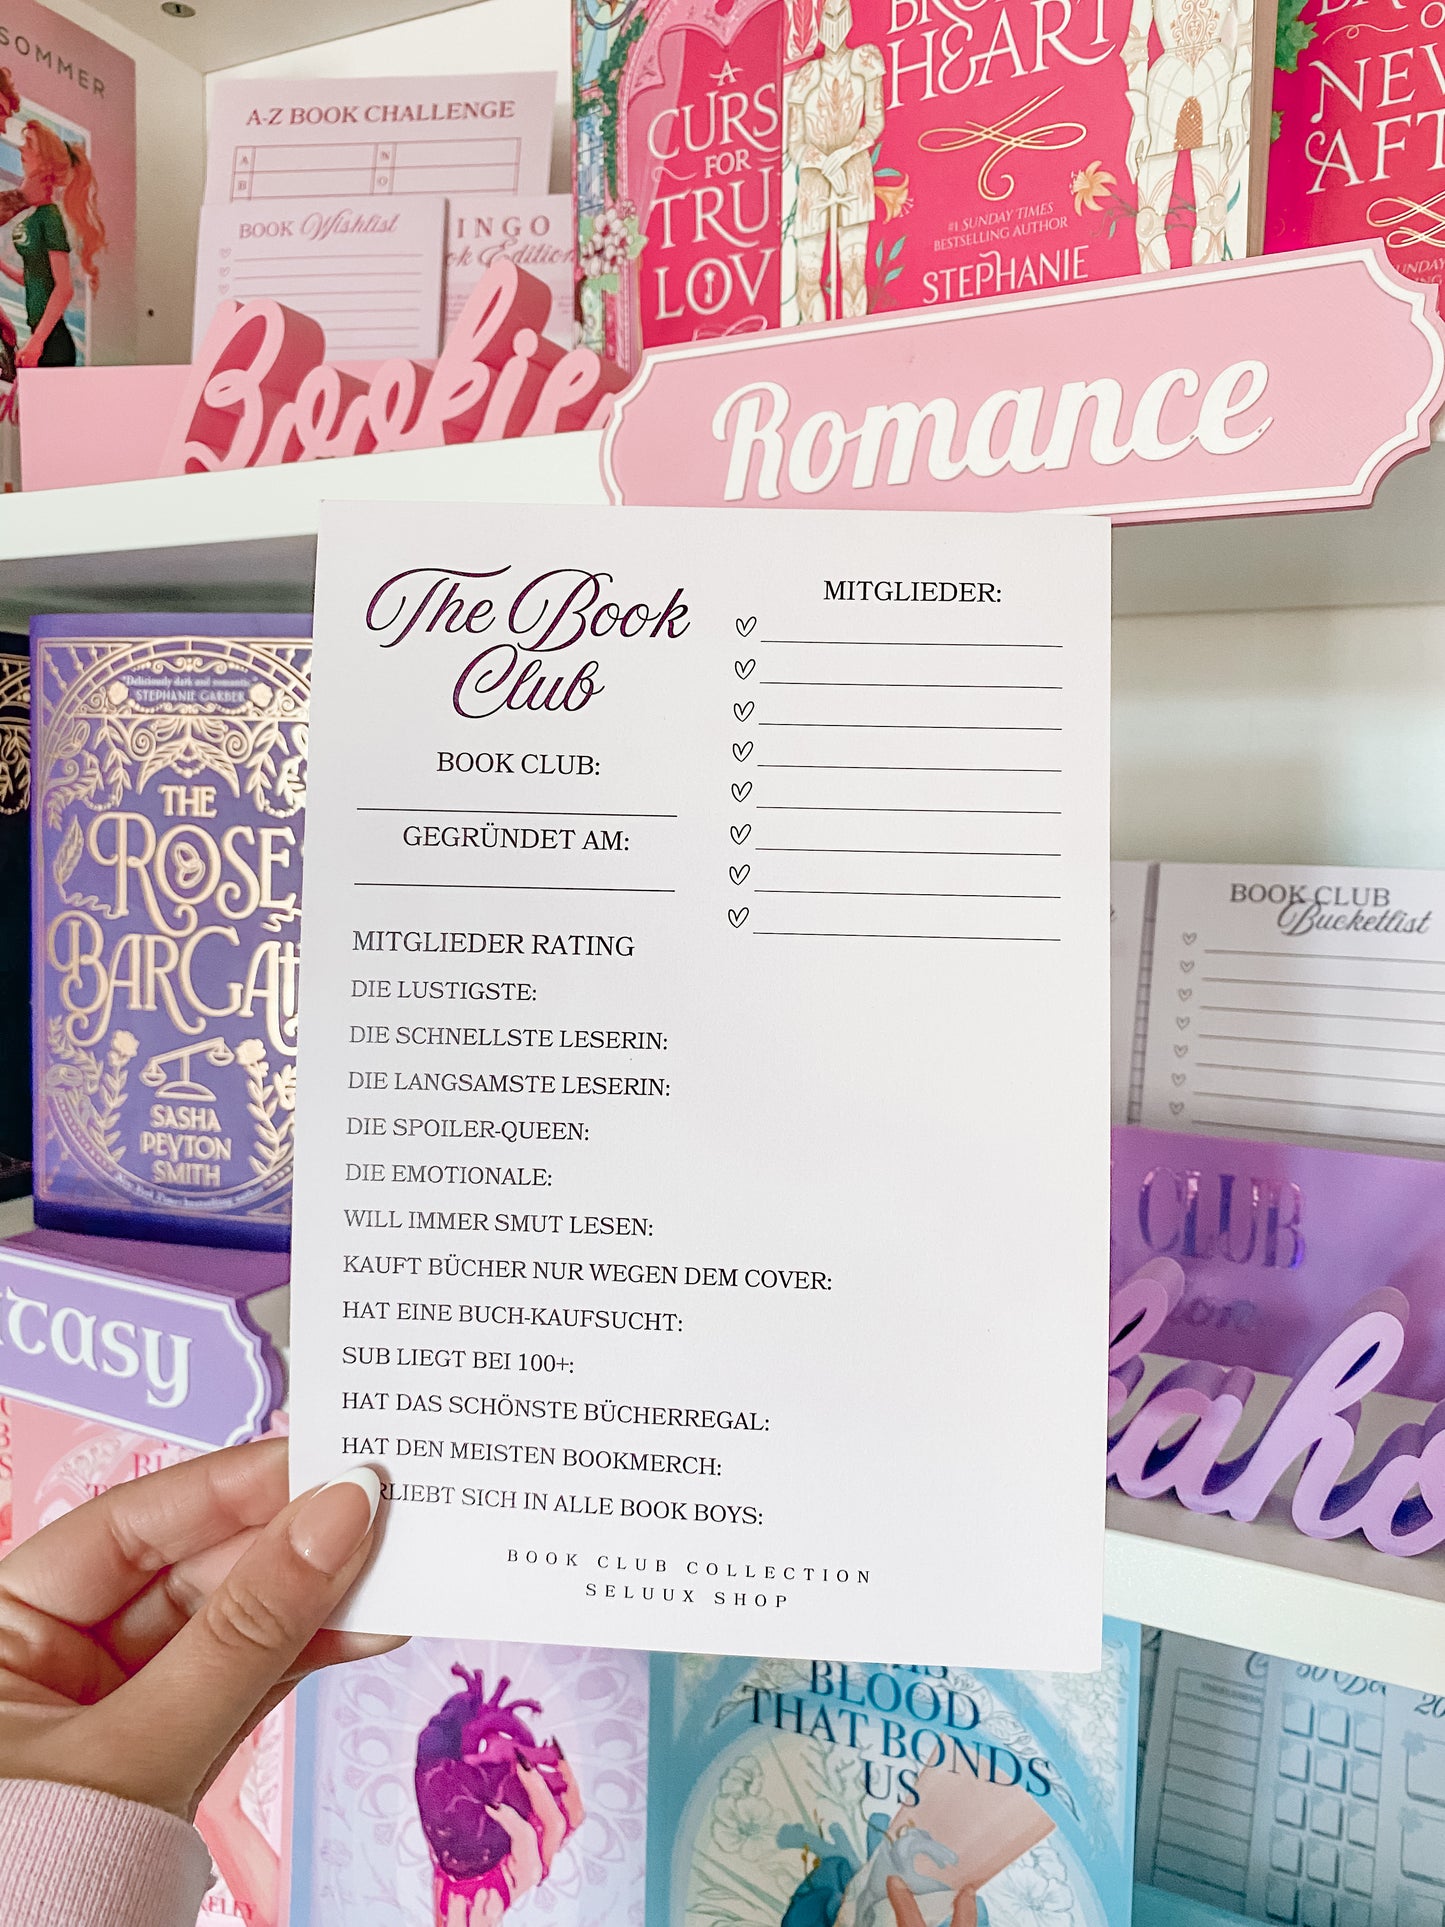 SOMMER
A-Z BOOK CHALLENGE
A
N
B
O
BOOK Wishlist
INGO
ok Edition
Bookie
A
CURS
FOR
TRU
LOV
HEART
#1 SUNDAY TIMES
BESTSELLING AUTHOR
STEPHANIE
NEV
AFT
Romance
The Book
Club
BOOK CLUB:
GEGRÜNDET AM:
MITGLIEDER:
MITGLIEDER RATING
DIE LUSTIGSTE:
DIE SCHNELLSTE LESERIN:
DIE LANGSAMSTE LESERIN:
DIE SPOILER-QUEEN:
DIE EMOTIONALE:
WILL IMMER SMUT LESEN:
KAUFT BÜCHER NUR WEGEN DEM COVER:
HAT EINE BUCH-KAUFSUCHT:
SUB LIEGT BEI 100+:
HAT DAS SCHÖNSTE BÜCHERREGAL:
HAT DEN MEISTEN BOOKMERCH:
RLIEBT SICH IN ALLE BOOK BOYS:
BOOK CLUB COLLECTION
SELUUX SHOP
"Deliciously dark and romantic."
STEPHANIE GARBER
THE
ROSE
BARGA
SASHA
PEYTON
SMITH
tasy
BOOK CLUB
Bucketlist
CLUB
aho
BLOOD
THAT BONDS
US
ELEY